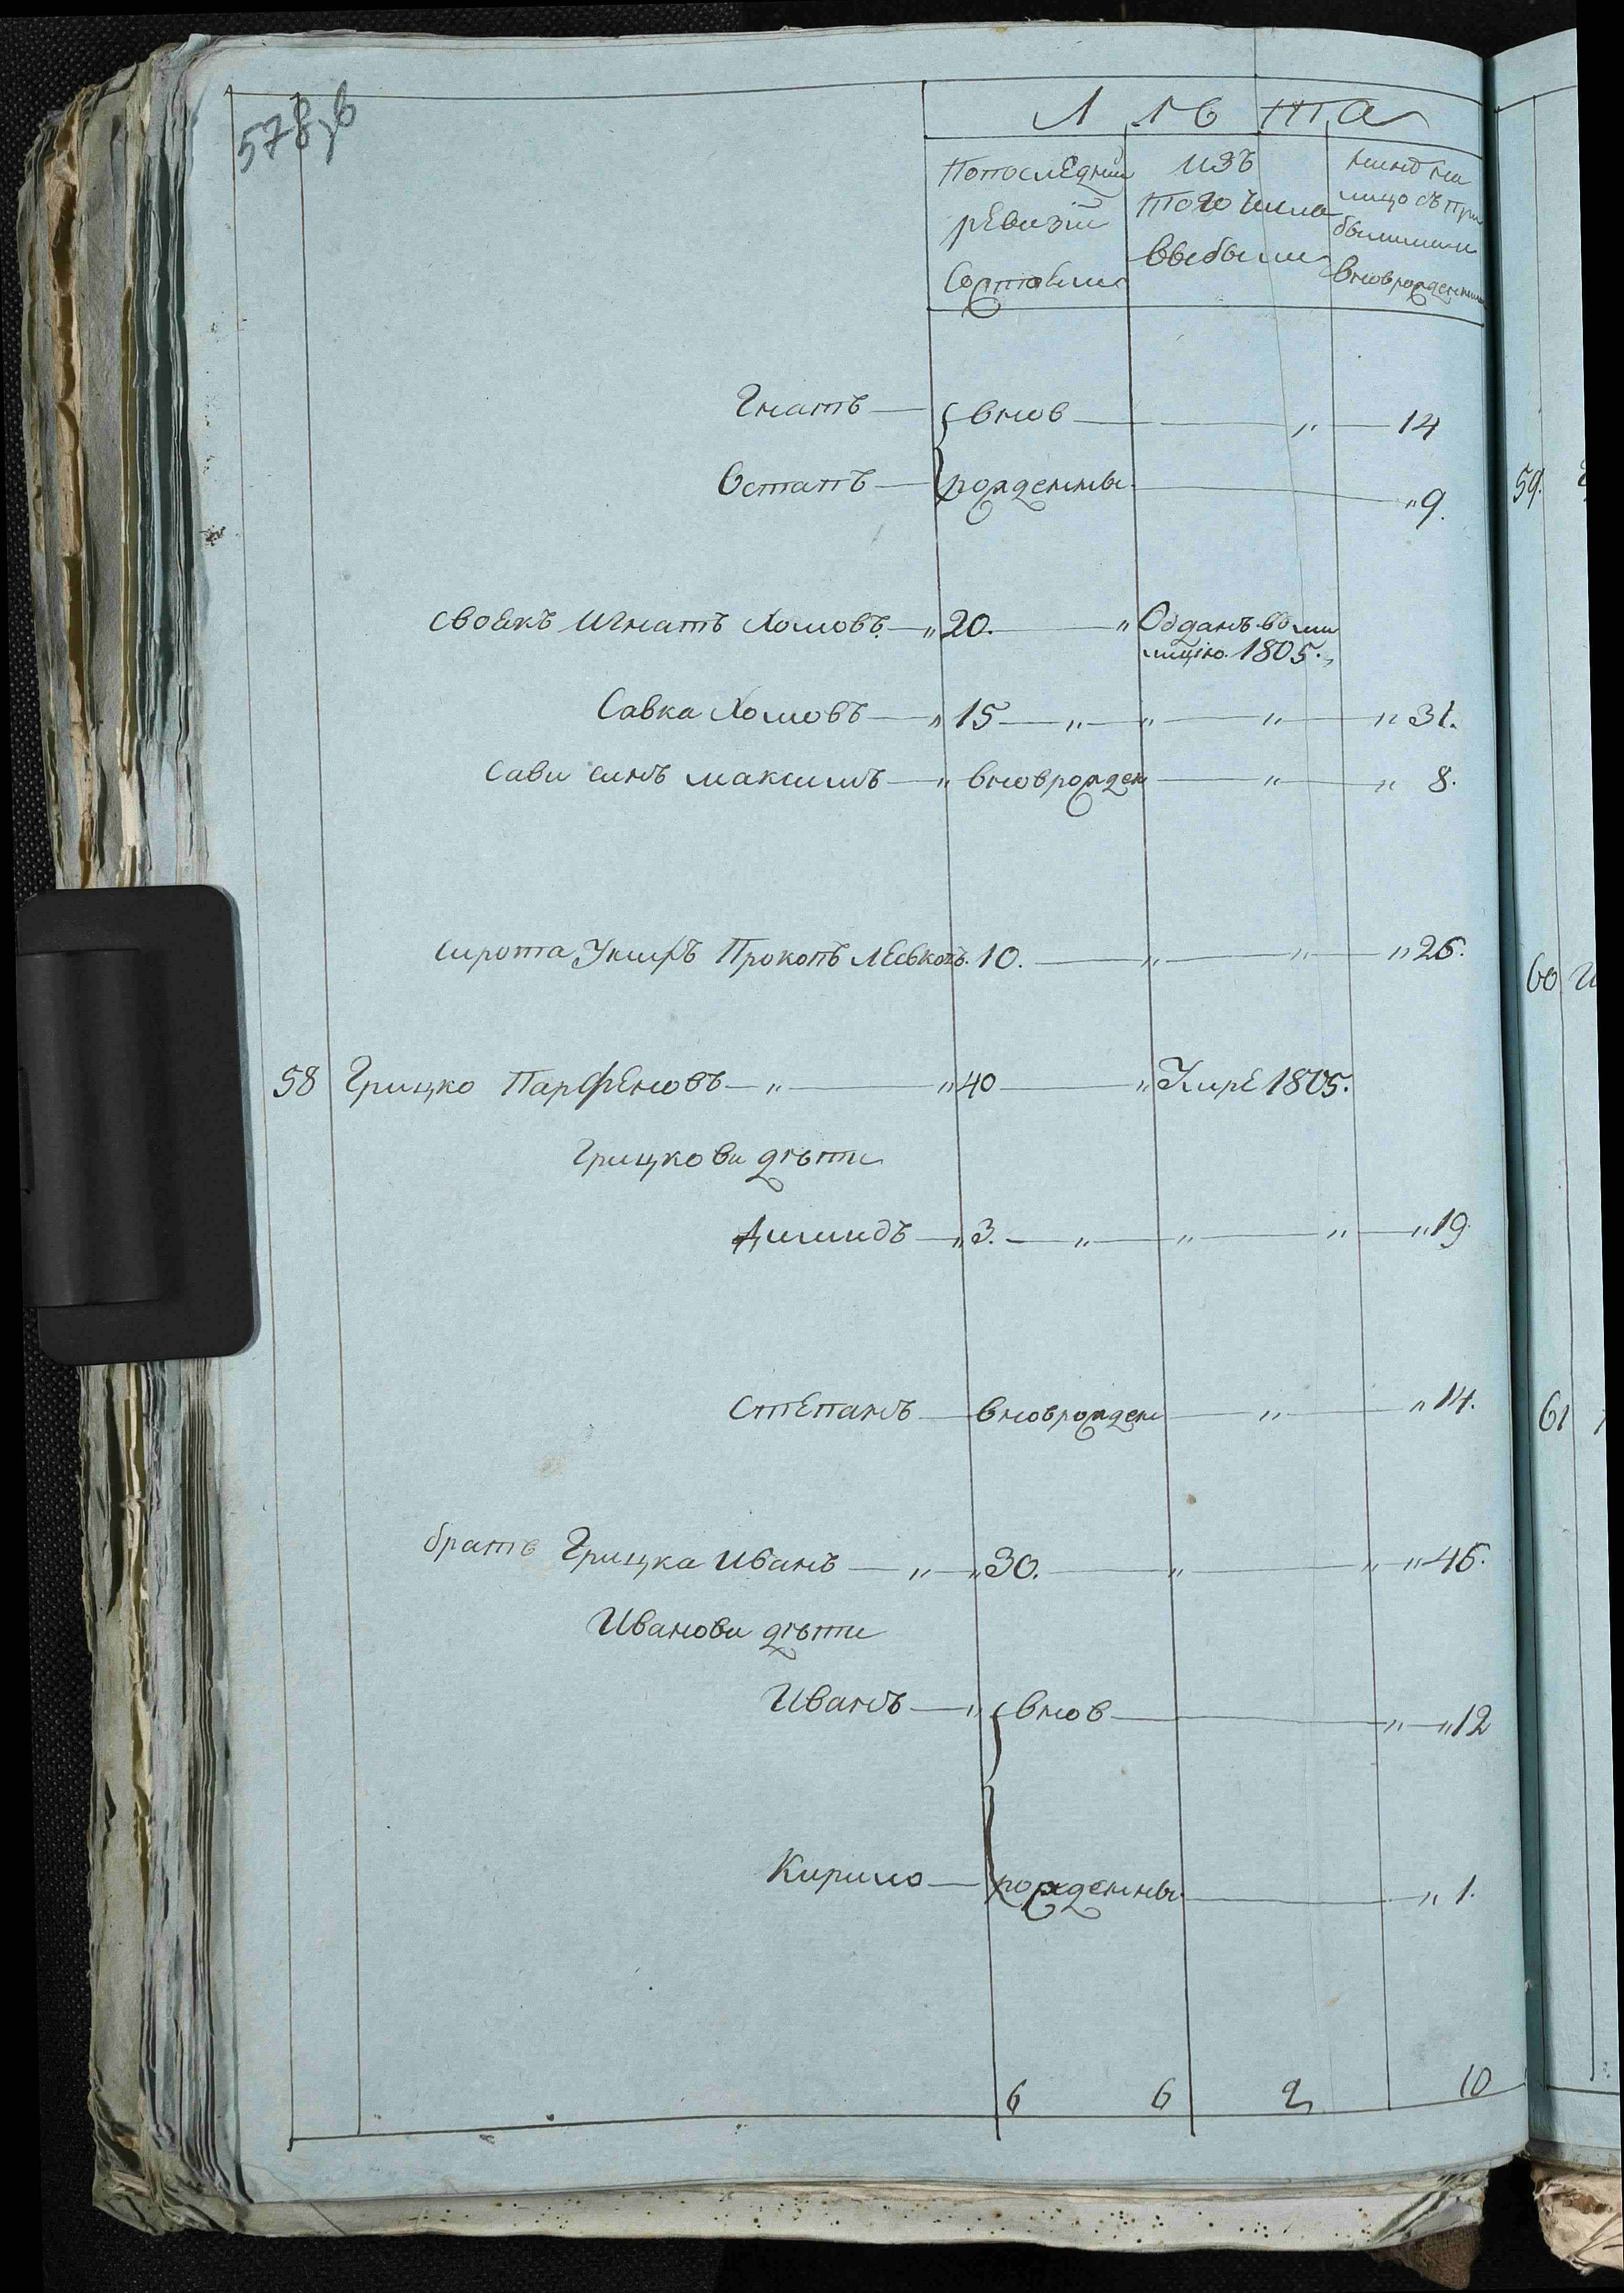 578зв
Л ѣ т а
Попоследнии
ревизіи
состояли
изъ
того числа
вибыли
ныне на
лицо съ при
былыми и
вновърожденными
Гнатъ — внов — „ — 14
Остапъ — рожденны — „ 9.
своякъ Игнатъ Хомовъ — „ 20. — „ Одданъ во ми
лицию 1805.
Савка Хомовъ — „ 15 — „ — „ — „ — „ 31.
Сави синъ максимъ — „ вновърожден — „ — „ 8.
сирота Прокопъ Леськовъ. 10. — „ — „ — „ 26.
58 Грицко Парфеновъ — „ — „ 40 — „ 1805.
Грицкови дѣти
Димидъ — „ 3. — „ — „ — „ — „ 19
Степанъ — вновърожден — „ — „ 14.
братъ Грицка Иванъ — „ — „ 30. — „ — „ „ 46.
Иванови дѣти
Иванъ — „ внов — „ — „ 12
Кирило — рожденны — „ 1.
6 6 2 10
59.
60 И
61